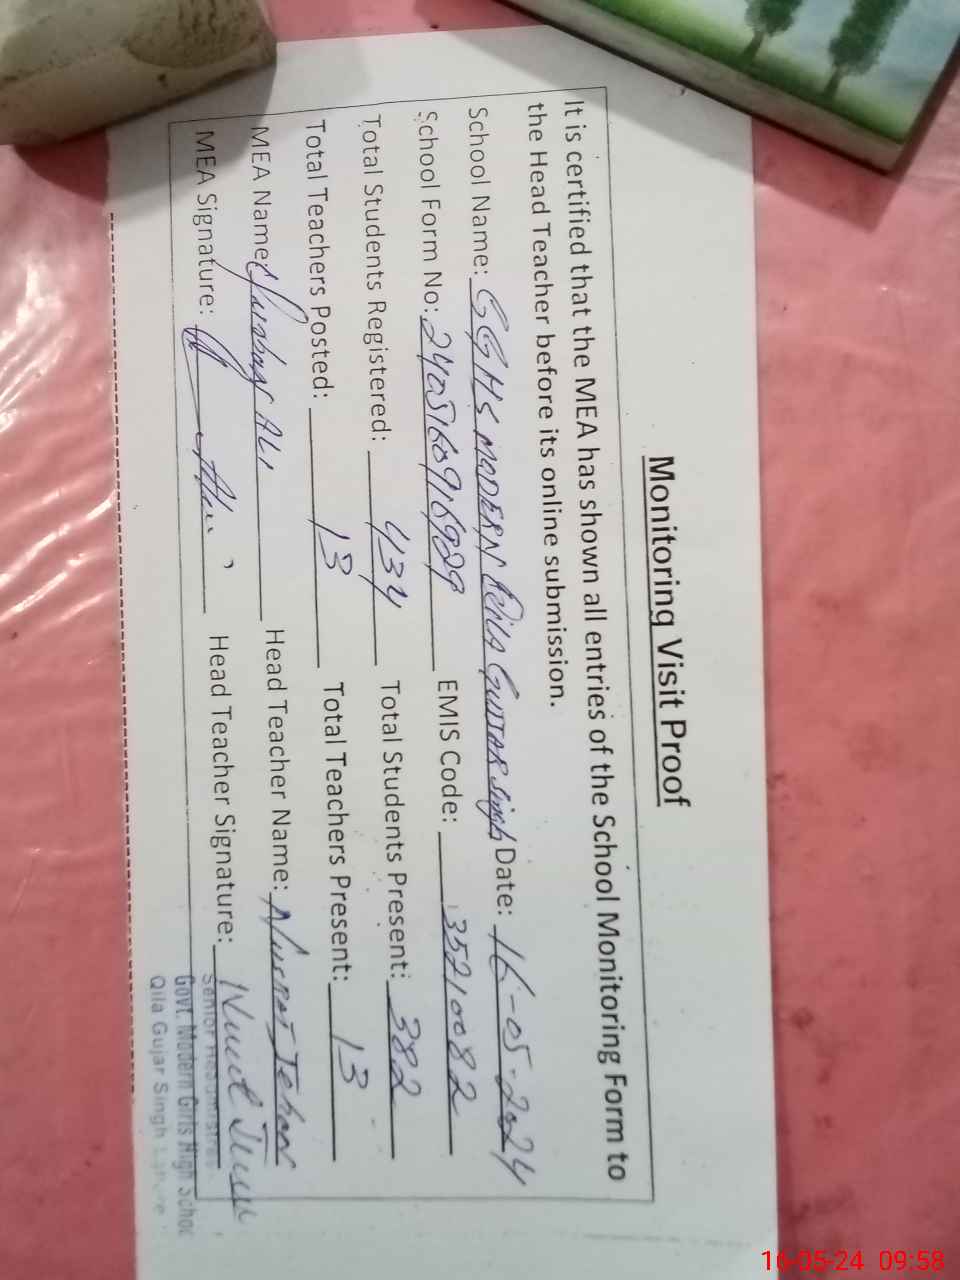 Monitoring Visit Proof
It is certified that the MEA has shown all entries of the School Monitoring Form to
the Head Teacher before its online submission.
School Name: GGHS MODERN QILA GUJJAR Singh Date: 16-05-2024
School Form No: EMIS Code: 35210082
Total Students Registered: 434 Total Students Present: 382
Total Teachers Posted: 13 Total Teachers Present: 13
MEA Name: ALI Head Teacher Name: Nusrat Jehan
MEA Signature: Head Teacher Signature:
Senior Headmistress
Govt. Modern Girls High School
Qila Gujar Singh Lahore
16-05-24 09:58